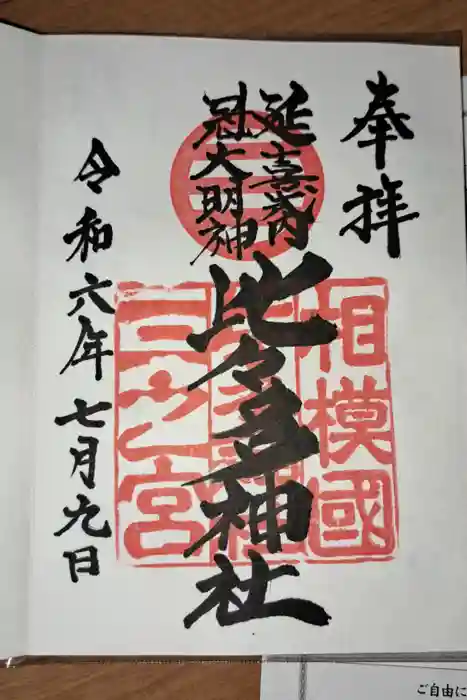 奉拝
延喜式内
冠大明神
比々多神社
令和六年七月九日
相模國
三之宮
ご自由に